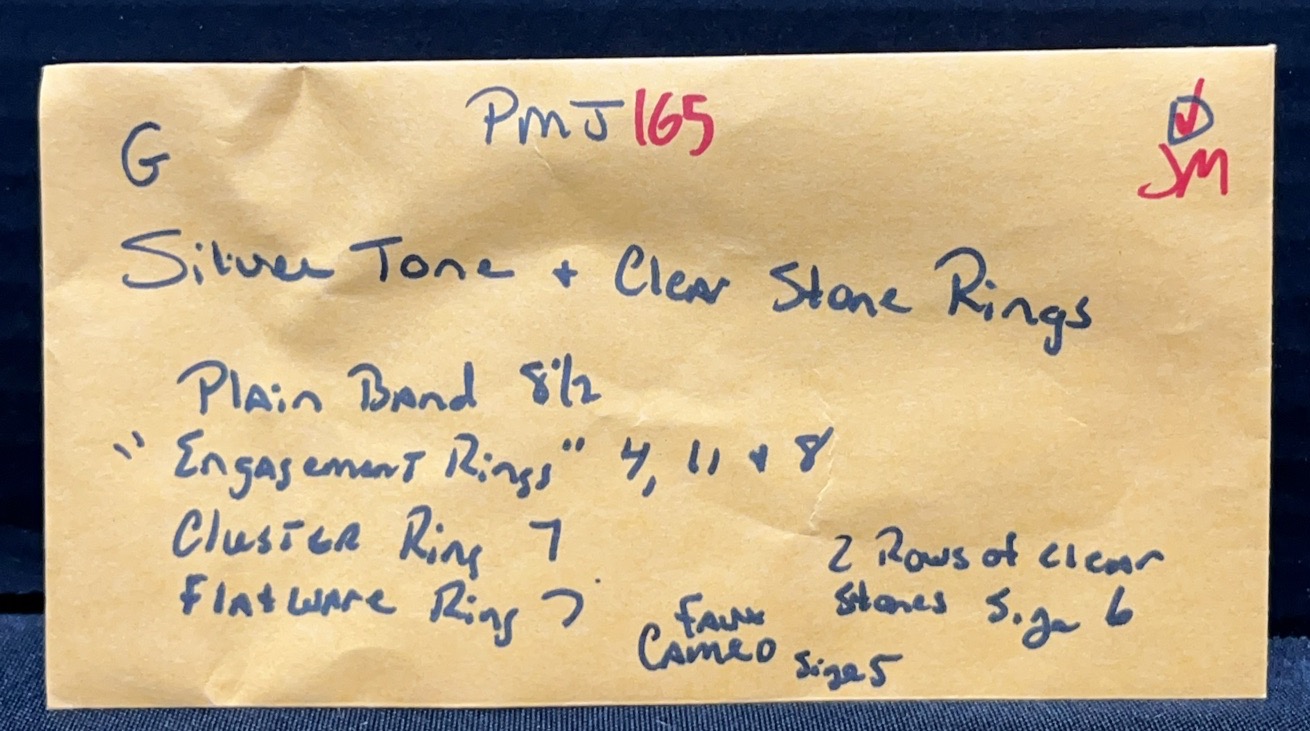 PMJ 165
G
JM
Silver Tone + Clear Stone Rings
Plain Band 8 1/2
"Engagement Rings" 4, 11 + 8
Cluster Ring 7
Flatware Ring 7
2 Rows of clear
stones Size 6
Faux
Cameo Size 5